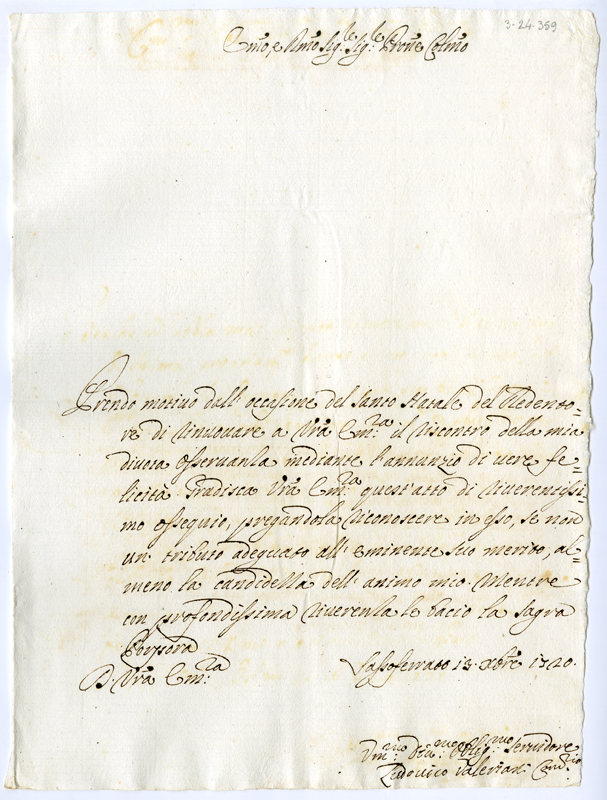 3-24-359
Emõ, e Rmõ Sig.re Sig.re Prone Colmõ
Prendo motivo dall' occasione del Santo Natale del Redento=
re di rinuouare a Vrã Em.za il riscontro della mia
diuota osseruanza mediante l'annunzio di uere fe=
licità. Gradisca Vrã Em.za quest' atto di riuerentissi=
mo ossequio, pregandola riconoscere in esso, se non
un' tributo adeguato all' eminente suo merito, al=
meno la candidezza dell' animo mio. Mentre
con profondissima riuerenza le bacio la sagra
Porpora
D. Vrã Em.za Sassoferrato 13 Xbrẽ 1720.
Vm.mo Diu.mo Oblig.mo Seruidore
Ludouico Valeriani